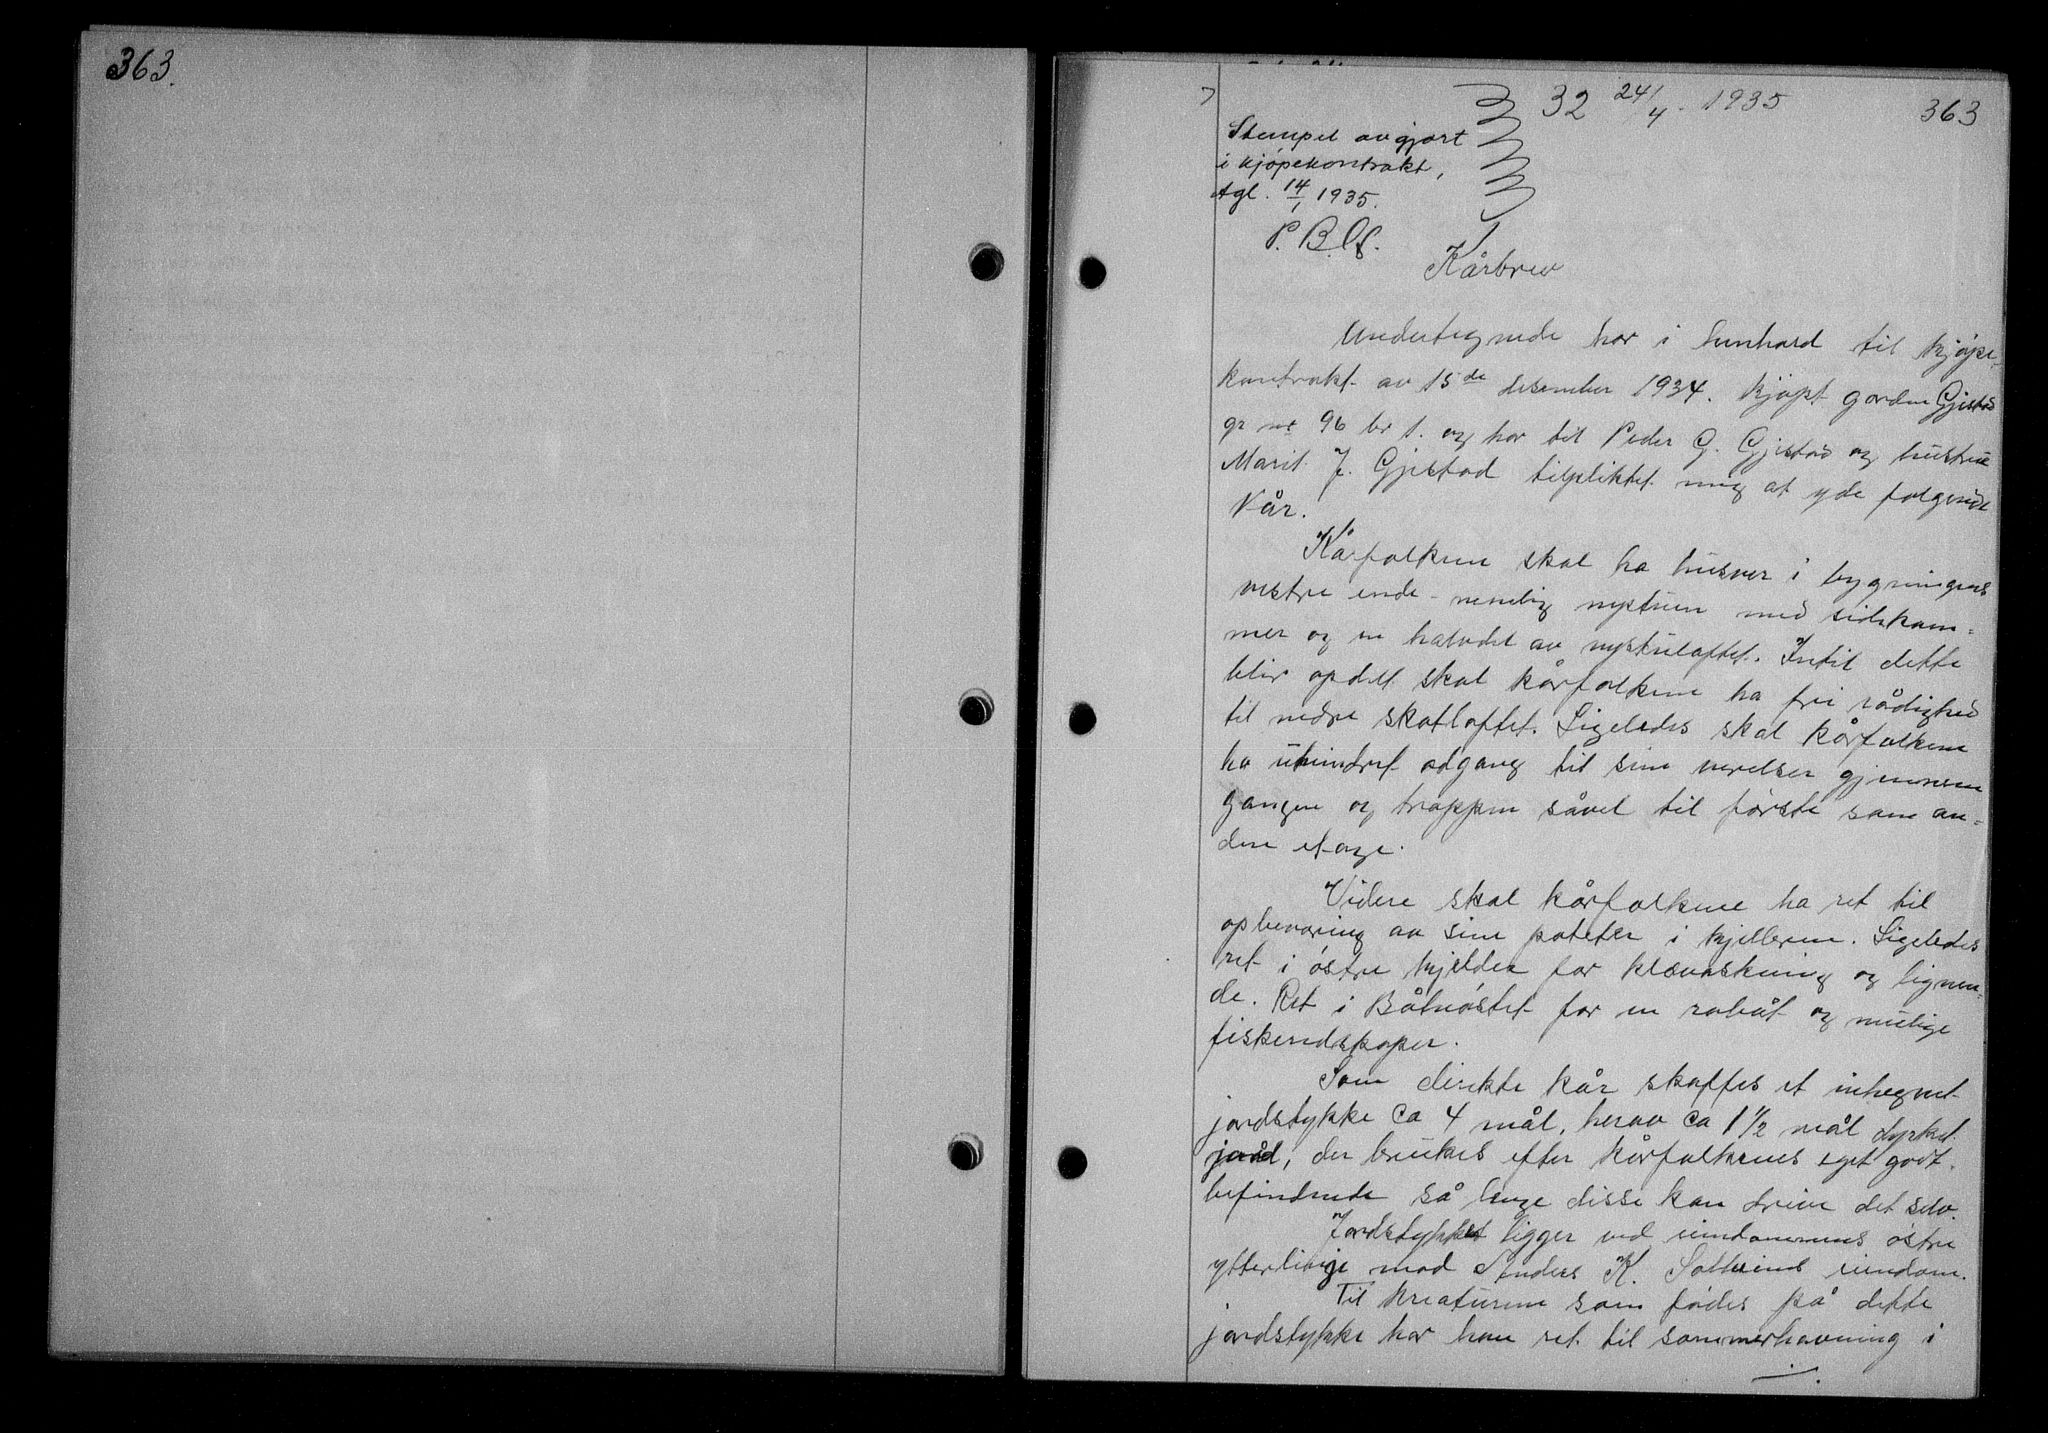 363.
32 24/4. 1935 363
Stempel avgjort
i kjøpekontrakt,
tgl. 14/1 1935.
Kårbrev
Undertegnede har i henhold til kjøpe-
kontrakt av 15de desember 1934. kjøpt garden Gjestad
gr nr 96 br 1. og har til Peder G. Gjestad og hustru
Marit J. Gjestad tilpliktet mig at yde følgende
kår.
Kårfolkene skal ha husver i bygningens
vestre ende - nemlig nystuen med sidekam=
mer og en halvdel av nystuloftet. Intil dette
blir opdelt skal kårfolkene ha fri rådighed
til nedre skotloftet. Ligeledes skal kårfolkene
ha uhindret adgang til sine verelser gjennem
gangen og trappen såvel til første som an=
dere etage.
Videre skal kårfolkene ha ret til
opbevaring av sine poteter i kjelleren. Ligeledes
ret i østre kjelder for klævaskning og lignen=
de. Ret i Båtnøstet for en robåt og mulige
fiskeredskaper.
Som direkte kår skaffes et inhegnet
jordstykke ca 4 mål, herav ca 1 1/2 mål dyrket
jord, der brukes efter kårfolkenes eget godt-
befindende så lenge disse kan drive det selv.
Jordstykket ligger ved eiendommens østre
ytterlinje mod Anders K. eiendom.
Til kreaturene som fødes på dette
jordstykke har han ret til sommerhavning i